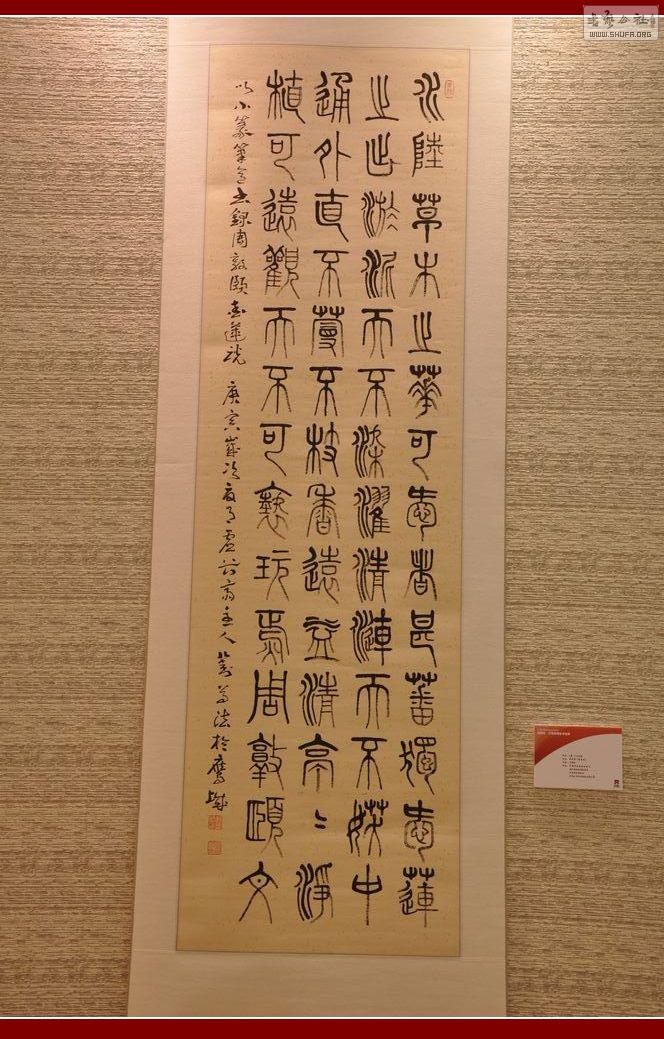 书艺公社
WWW.SHUFA.ORG
水陸草木之華可愛者甚蕃獨愛蓮
之出淤泥而不染濯清漣而不妖中
通外直不蔓不枝香遠益清亭〻淨
植可遠觀而不可褻玩焉周敦頤文
以小篆筆意書錄周敦頤愛蓮説 庚寅歲次夏月虛竹齋主人法於鷹城